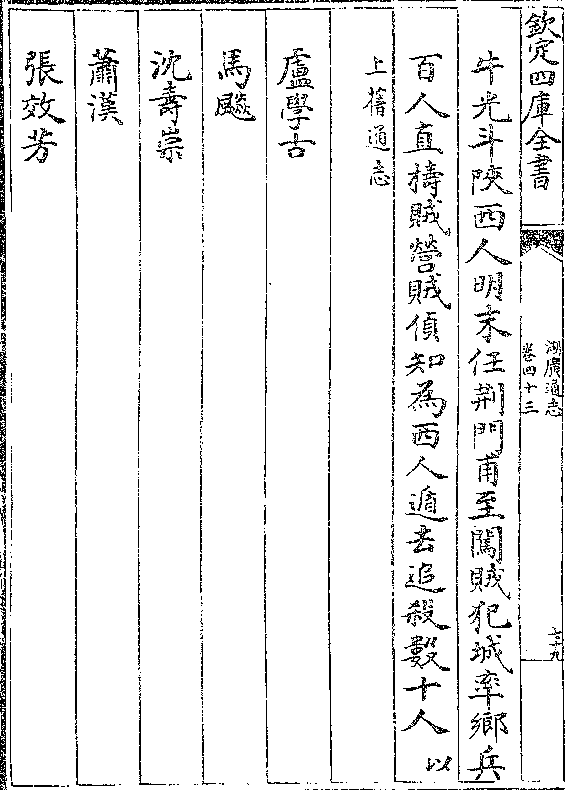 欽定四庫全書
湖廣通志
卷四十三
牛光斗陝西人明末任荆門甫至闖賊犯城率鄉兵
百人直擣賊營賊偵知為西人遁去追殺數十人以
上舊通志
盧學古
馬飈
沈壽崇
蕭漢
張效芳